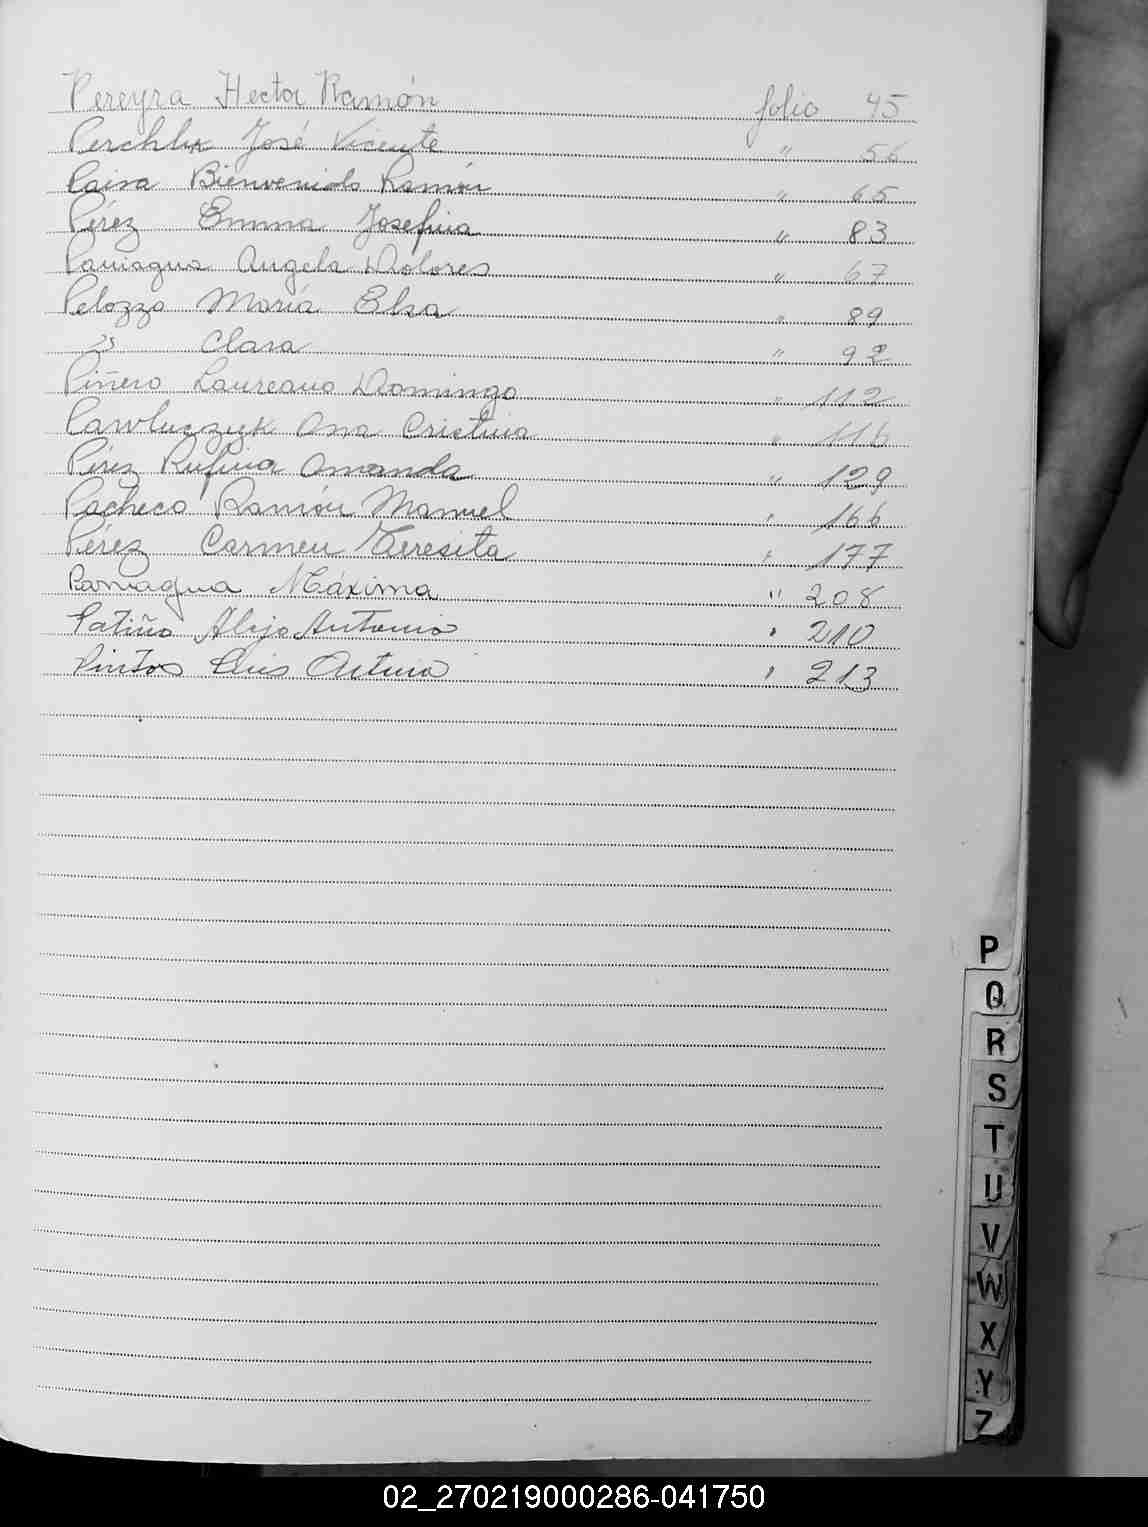 Pereyra Hector Ramón folio 45
José Vicente " 56
Bienvenido Ramón " 65
Pérez Emma Josefina " 83
Paniagua Angela Dolores " 67
Pelozzo María Elsa " 89
" Clara " 92
Piñero Laureano Domingo " 112
Pawluczyk Ana Cristina " 116
Pérez Rufina Amanda " 129
Pacheco Ramón Manuel " 166
Pérez Carmen Teresita " 177
Paniagua Máxima " 208
Patiño Alejo Antonio " 210
Pintos Luis Arturo " 213
P
Q
R
S
T
U
V
W
X
Y
Z
02_270219000286-041750